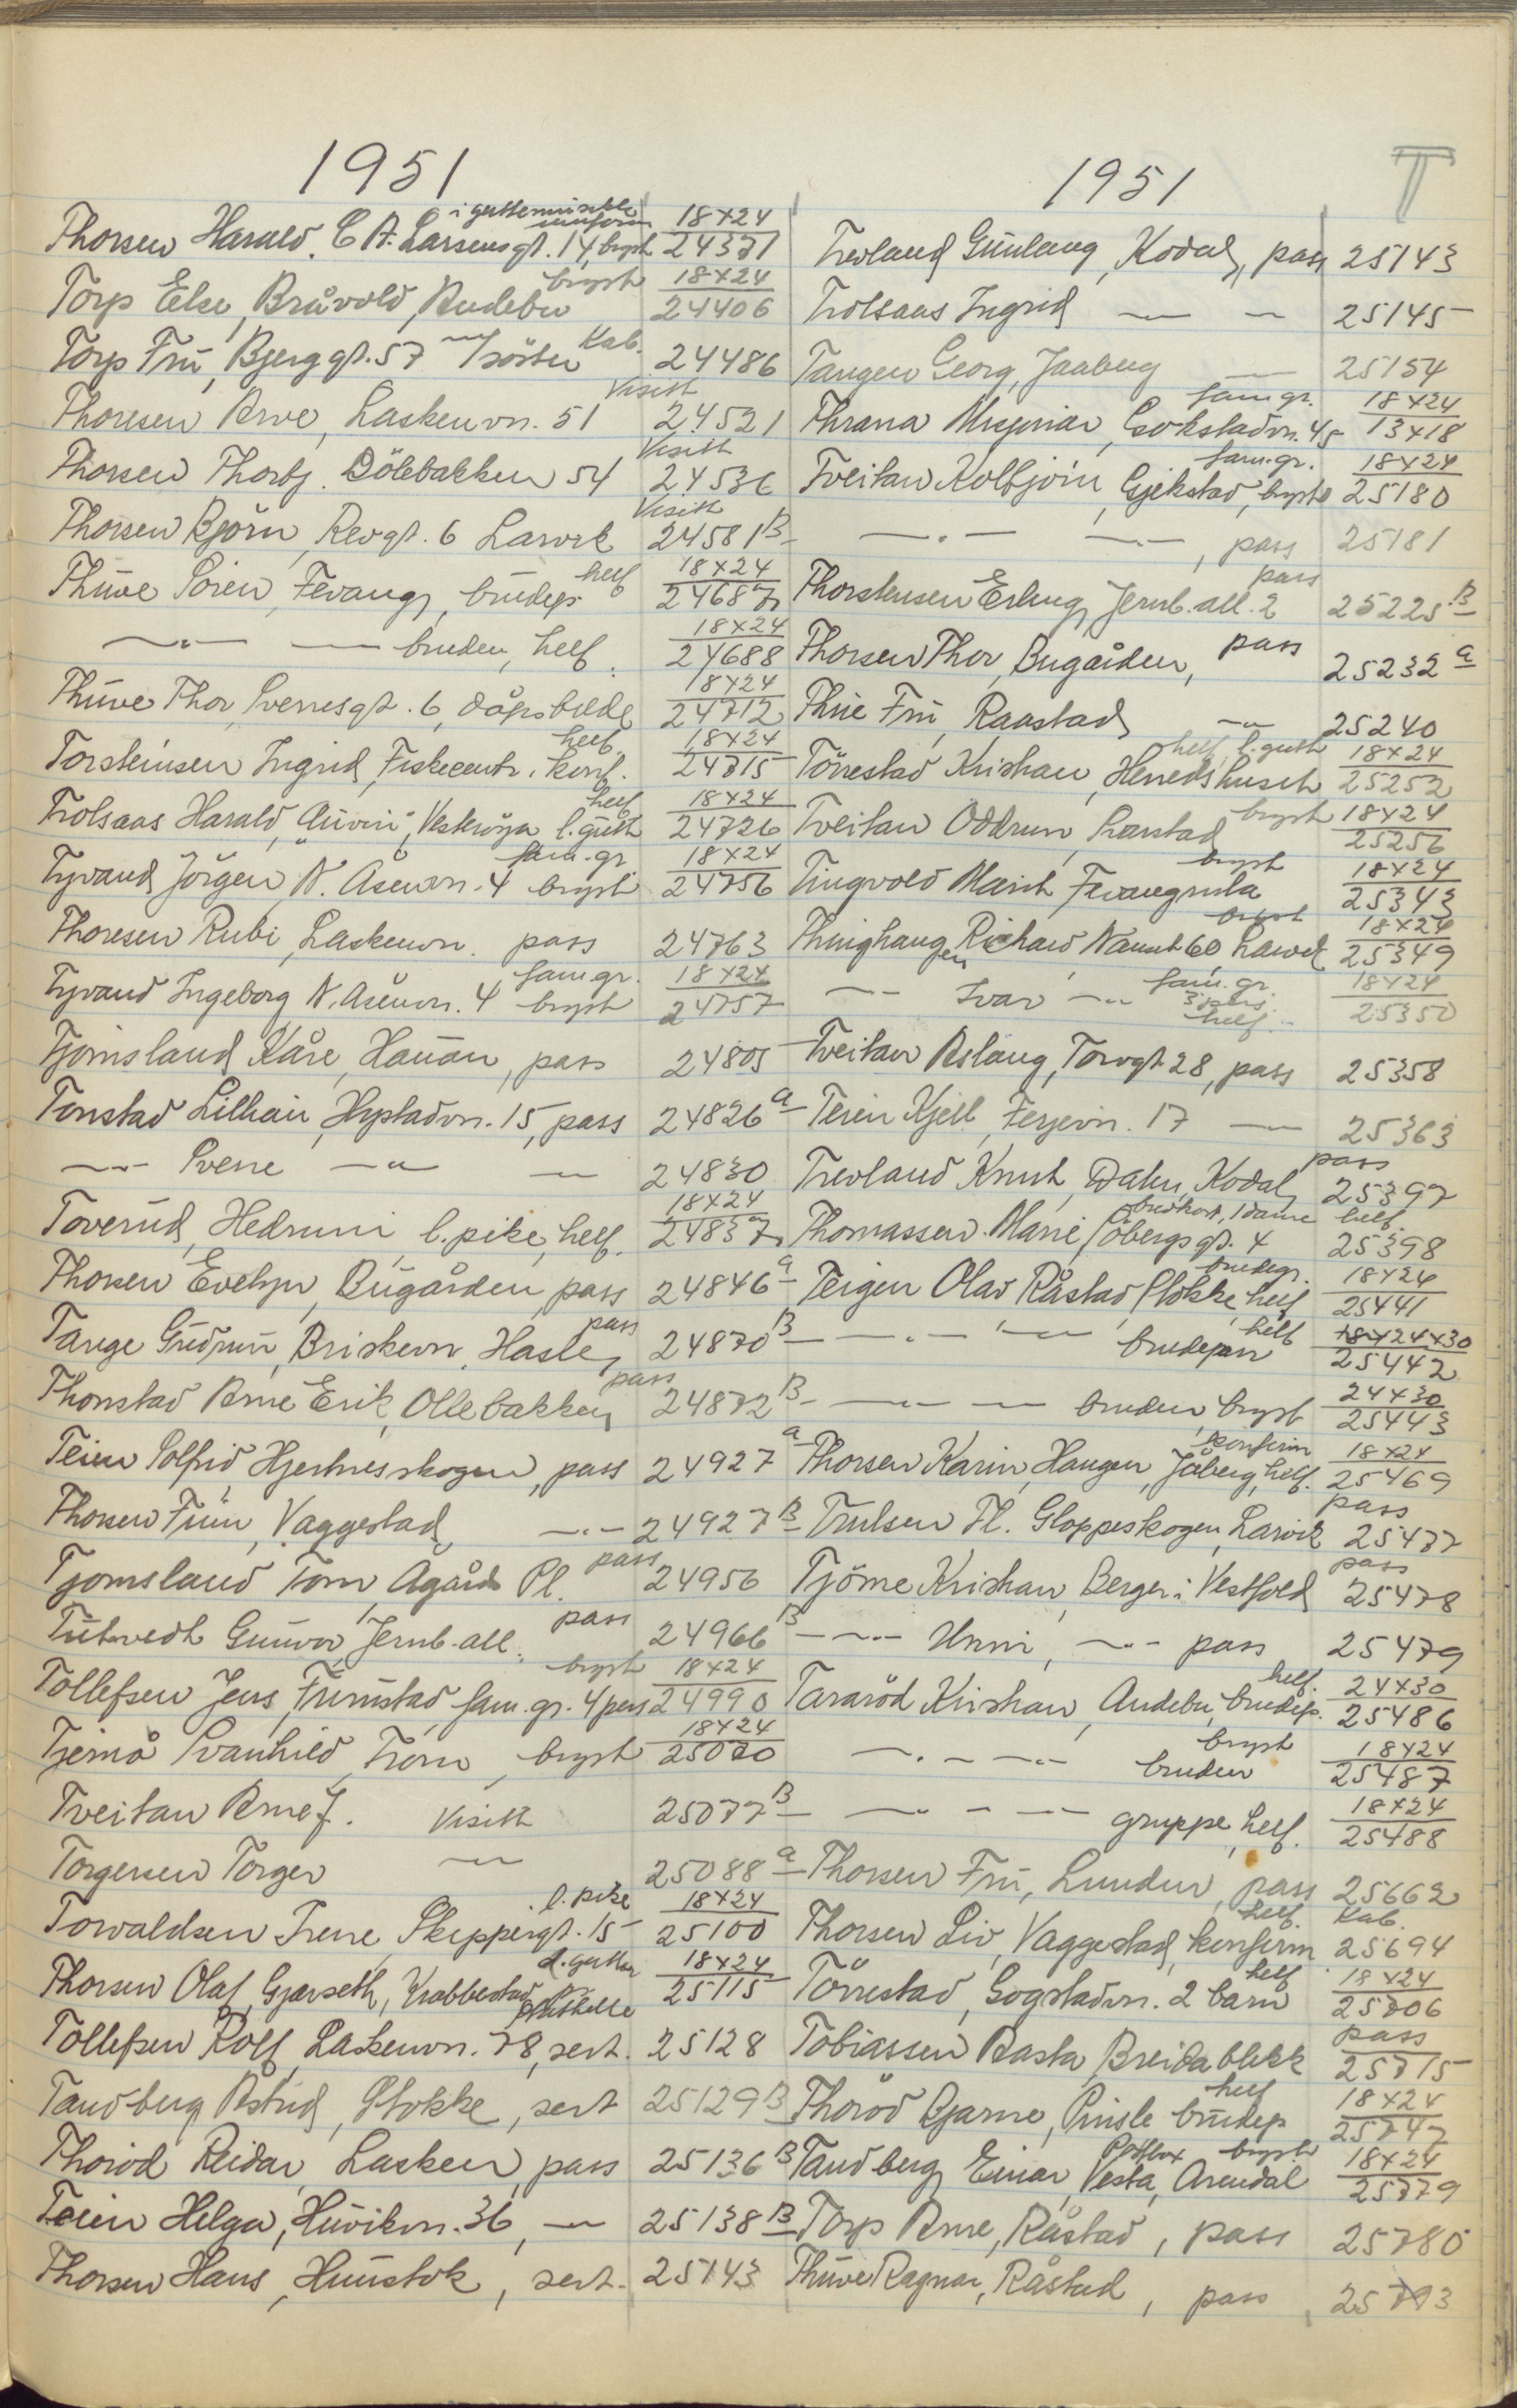 1951
Thorsen Harald, C A. Larsensgt. 14, bryst 18x24 24371
Torp Else, Bråvold, Andebu bryst 18x24 24406
Torp Frü, Bjerggt. 57 m/söster Kab. 24486
Thoresen Arve, Laskenvn. 51 Visitt 24521
Thorsen Thorbj. Dölebakken 54 Visitt 24536
Thorsen Björn, Revgt. 6 Larvik Visitt 24581 B
Thüve Sören, Fevang, brüdep. helf 18x24 24687
—"— —"— bruden, helf. 18x24 24688
Thüve Thor, Sverresgt. 6, dåpsbilde 18x24 24712
Torsteinsen Ingrid, Fiskecentr. konf. helf. 18x24 24715
Trolsaas Harald, Vesteröya l. gutt helf 18x24 24726
Tyvand Jörgen, N. Åsenvn. 4 bryst fam.gr 18x24 24756
Thoresen Rubi, Laskenvn. pass 24763
Tyvand Ingeborg N. Åsenvn. 4 bryst fam.gr. 18x24 24757
Tjomsland Kåre, Hauan, pass 24805
Tonstad Lillian, Hystadvn. 15, pass 24826 a
—"— Sverre —"— — 24830
Toverud, Hedrum, l. pike, helf. 18x24 24837
Thorsen Evelyn, Bügården, pass 24846 a
Tange Gudrun, Briskevn, Hasle, pass 24870 B
Thonstad Arne Erik, Ollebakken pass 24872 B
Teien Solfrid, Hjertnesskogen, pass 24927 a
Thorsen Finn, Vaggestad, —"— 24927 B
Tjomsland Tom, Agårds Pl. pass 24956
Tutvedt Gunvor, Jernb. all. pass 24966 B
Tollefsen Jens, Furustad, fam.gr. 4 pers bryst 18x24 24990
Tjemå Svanhild, Trom, bryst 18x24 25020
Tveitan Arne J. Visitt 25077 B
Torgersen Torger — 25088 a
Torvaldsen Irene, Skippergt. 15 l. pike 18x24 25100
Thorsen Olaf, Gjerseth, Krabbestad 18x24 25115
Tollefsen Rolf, Laskenvn. 78, sert. 25128
Tandberg Astrid, Stokke, sert 25129 B
Thoröd Reidar, Lasken, pass 25136 B
Teien Helga, Hüvikvn. 36, — 25138 B
Thorsen Hans, Hunstok, sert. 25143
1951 T
Trevland Gunlaug, Kodal, pass 25143
Trolsaas Ingrid — — 25145
Tangen Georg, Jaaberg — 25154
Thrana Mugniar, Gokstadvn. 45 fam gr. 18x24 13x18
Tveitan Kolbjörn, Gjekstad, bryst fam.gr. 18x24 25180
—"— —"—, pass 25181
Thorstensen Erling, Jernb. all. 2 pass 25225 B
Thorsen Thor, Bugården, pass 25232 a
Thue Frü, Raastad —"— 25240
Törrestad Kristian, Herredshuset helf, l. gutt 18x24 25252
Tveitan Oddrun, bryst 18x24 25256
Tingvold Marit, Fevangrula bryst 18x24 25343
Thinghaugen Richard Nanset 60 Larvik bryst 18x24 25349
—"— Ivar —"— fam. gr. 3 pers. helf. 18x24 25350
Tveitan Aslaug, Torvgt. 28, pass 25358
Teien Kjell, Ferjevn. 17 — 25363
Trevland Knut, Dalen, Kodal, pass 25397
Thomassen Marie, Söbergsgt. 4 1 dame helf. 25398
Teigen Olav Råstad, Stokke, helf brudegr. 18x24 25441
—"— —"— brudepar helf 24x30 25442
—"— — bruden, bryst 24x30 25443
Thorsen Karin, Haugen, Jåberg, helf. konfirm 18x24 25469
Trulsen Fl. Gloppeskogen, Larvik pass 25477
Tjöme Kristian, Berger i Vestfold pass 25478
—"— Unni, —"— pass 25479
Tararöd Kristian, Andebu, brudep. helf. 24x30 25486
—"— —"— bruden bryst 18x24 25487
—"— — — gruppe, helf. 18x24 25488
Thorsen Frü, Lunden, pass 25662
Thorsen Liv, Vaggestad, konfirm helf. Kab. 25694
Törrestad, Gogstadvn. 2 barn helf 18x24 25706
Tobiassen Aasta, Breidablikk pass 25715
Thoröd Bjarne, Prinsle brüdep helf 18x24 25747
Tandberg Einar, Vesta, Arendal Postbox bryst 18x24 25779
Torp Arne, Råstad, pass 25780
Thüve Ragnar, Råstad, pass 25793